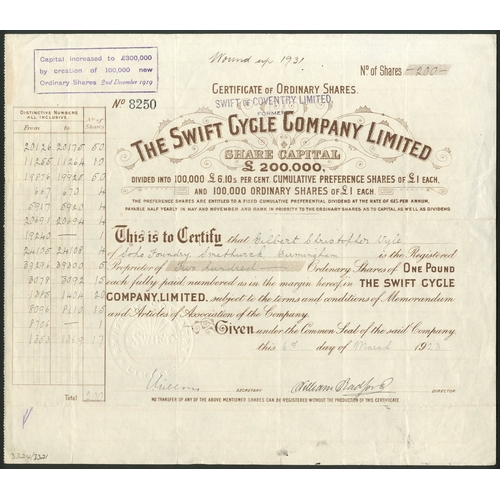 Wound up 1931
Capital increased to £300,000
by creation of 100,000 new
Ordinary Shares 2nd December 1919
No of Shares -200-
CERTIFICATE OF ORDINARY SHARES.
SWIFT OF COVENTRY LIMITED,
FORMERLY
No 8250
THE SWIFT CYCLE COMPANY LIMITED
SHARE CAPITAL
£200,000,
DIVIDED INTO 100,000 £6.10s PER CENT. CUMULATIVE PREFERENCE SHARES OF £1 EACH,
AND 100,000 ORDINARY SHARES OF £1 EACH.
THE PREFERENCE SHARES ARE ENTITLED TO A FIXED CUMULATIVE PREFERENTIAL DIVIDEND AT THE RATE OF 6½% PER ANNUM,
PAYABLE HALF YEARLY IN MAY AND NOVEMBER AND RANK IN PRIORITY TO THE ORDINARY SHARES AS TO CAPITAL AS WELL AS DIVIDENDS
DISTINCTIVE NUMBERS ALL INCLUSIVE. No of Shares
From to
20126 20175 50
11255 11264 10
19876 19925 50
667 670 4
5917 5920 4
20691 20694 4
19240 — 1
24105 24108 4
39296 39300 5
3078 3092 15
1385 1404 20
8096 8110 15
8706 —
17
Total 200
This is to Certify that Gilbert Christopher Vyle
of Soho Foundry Smethwick Birmingham is the Registered
Proprietor of Two hundred Ordinary Shares of ONE POUND
each fully paid numbered as in the margin hereof in THE SWIFT CYCLE
COMPANY, LIMITED. subject to the terms and conditions of Memorandum
and Articles of Association of the Company.
Given under the Common Seal of the said Company
this 6th day of March 1923
SECRETARY
William Radford
DIRECTOR
NO TRANSFER OF ANY OF THE ABOVE MENTIONED SHARES CAN BE REGISTERED WITHOUT THE PRODUCTION OF THIS CERTIFICATE.